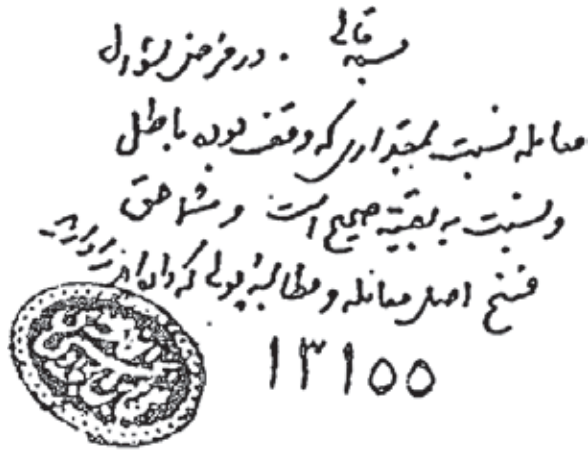 بسمه تعالی . در فرض سؤال
معامله نسبت بمقداری که وقف بوده باطل
و نسبت به بقیه صحیح است و شما حق
فسخ اصل معامله و مطالبه پولی که داده‌اید را دارید
۱۳۱۵۵